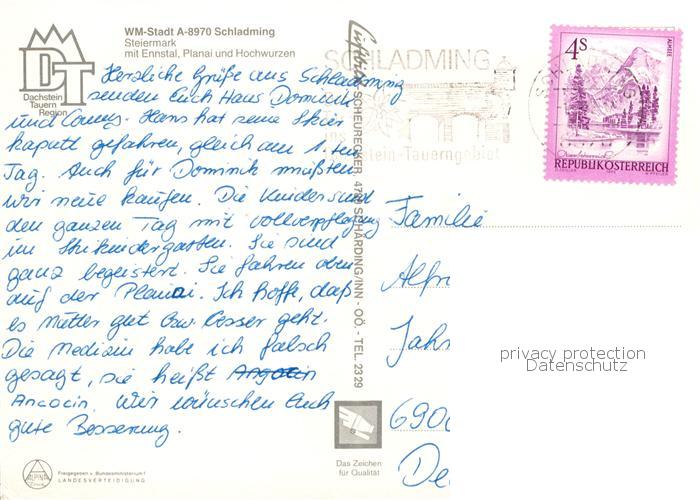 WM-Stadt A-8970 Schladming
Steiermark
mit Ennstal, Planai und Hochwurzen
DT
Dachstein
Tauern
Region
Herzliche Grüße aus Schladming
senden Euch Hans Dominik
und Conny. Hans hat seine Skier
kaputt gefahren, gleich am 1. ten
Tag. Auch für Dominik mußten
wir neue kaufen. Die Kinder sind
den ganzen Tag mit Vollverpflegung
im Skikindergarten. Sie sind
ganz begeistert. Sie fahren oben
auf der Planai. Ich hoffe, daß
es Mutter gut bzw. besser geht.
Die Medizin habe ich falsch
gesagt, sie heißt
Ancocin. Wir wünschen Euch
gute Besserung.
ALPINA
Freigegeben v. Bundesministerium f.
LANDESVERTEIDIGUNG
Luftbild SCHEURECKER, 4780 SCHÄRDING/INN - OÖ. - TEL. 23 29
Das Zeichen
für Qualität
SCHLADMING
Dachstein-Tauerngebiet
4 S
REPUBLIK ÖSTERREICH
Familie
Alfr
Jahr
6900
De
privacy protection
Datenschutz